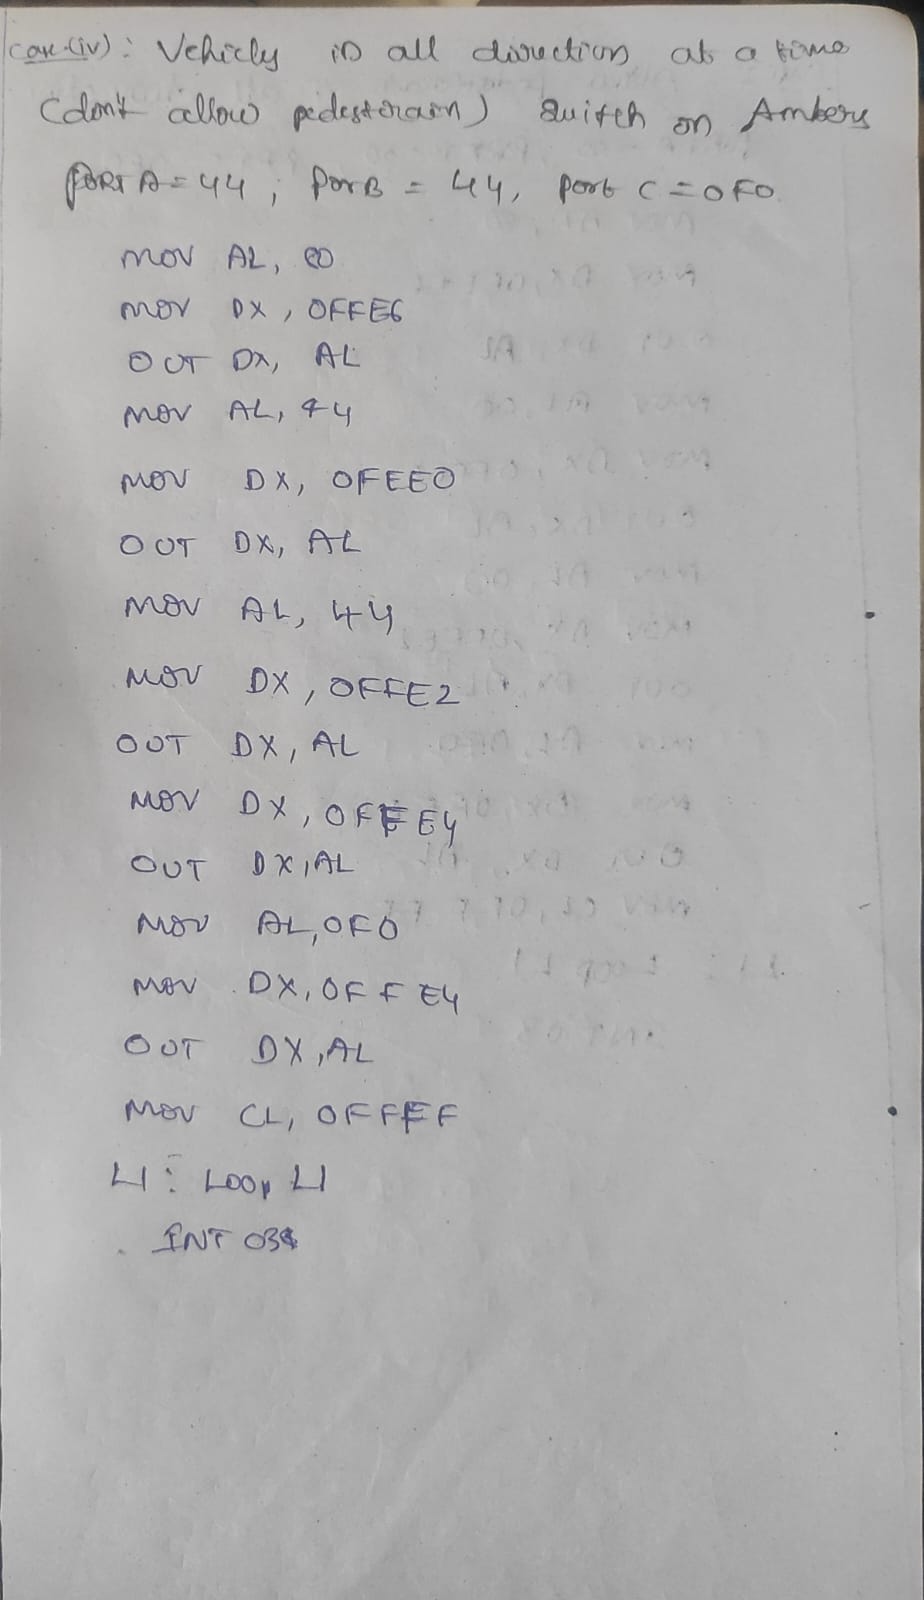 case-(iv): Vehicly in all direction at a time
(don't allow pedesterain) Switch on Ambers
PORT A = 44 ; Por B = 44, Port C = 0F0
MOV AL, 80
MOV DX, OFFE6
OUT DX, AL
MOV AL, 44
MOV DX, OFEEO
OUT DX, AL
MOV AL, 44
MOV DX, OFFE2
OUT DX, AL
MOV DX, OFFE4
OUT DX, AL
MOV AL, OFO
MOV DX, OFFE4
OUT DX, AL
MOV CL, OFFFF
L1: Loop L1
INT 03